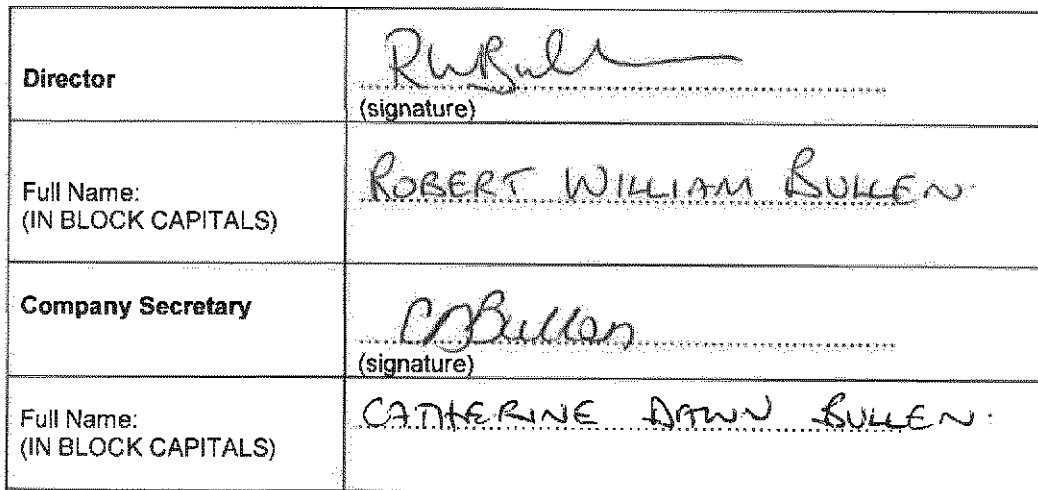 Director
RWBull
(signature)
Full Name:
(IN BLOCK CAPITALS)
ROBERT WILLIAM BULLEN.
Company Secretary
CDBullen
(signature)
Full Name:
(IN BLOCK CAPITALS)
CATHERINE DAWN BULLEN.